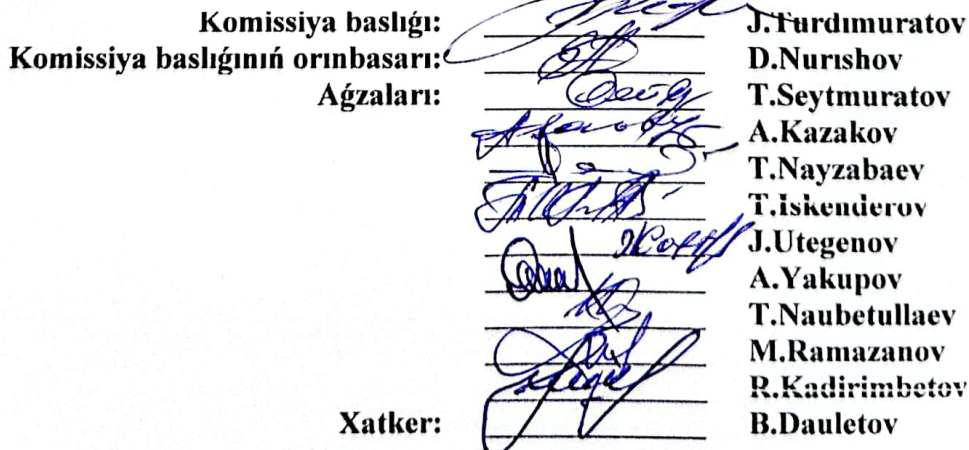 Komissiya baslıǵı: J.Turdımuratov
Komissiya baslıǵınıń orınbasarı: D.Nurıshov
Aǵzaları: T.Seytmuratov
A.Kazakov
T.Nayzabaev
T.İskenderov
J.Utegenov
A.Yakupov
T.Naubetullaev
M.Ramazanov
R.Kadirimbetov
Xatker: B.Dauletov